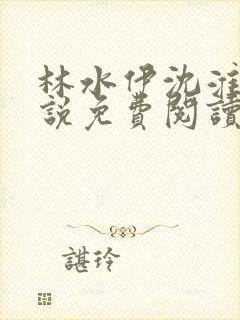 林水伊沈淮
說免費閱讀
諶玲